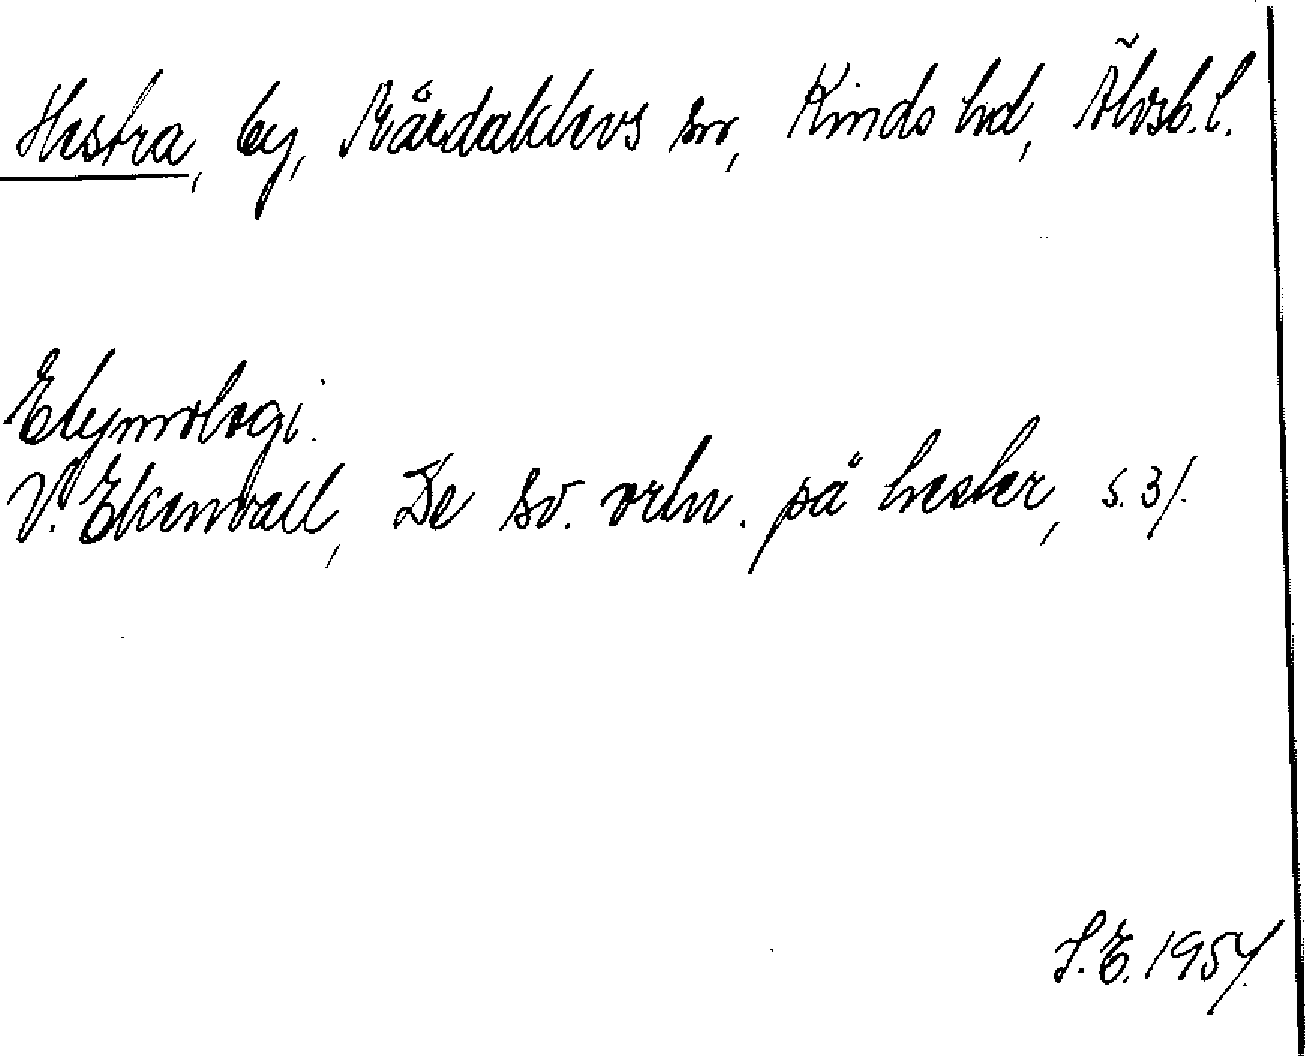 Hestra, by, Mårdaklevs sn, Kinds hd, Älvsb. l.
Etymologi.
V. Ekenvall, De sv. ortn. på hester, s. 31.
S.E. 1957.